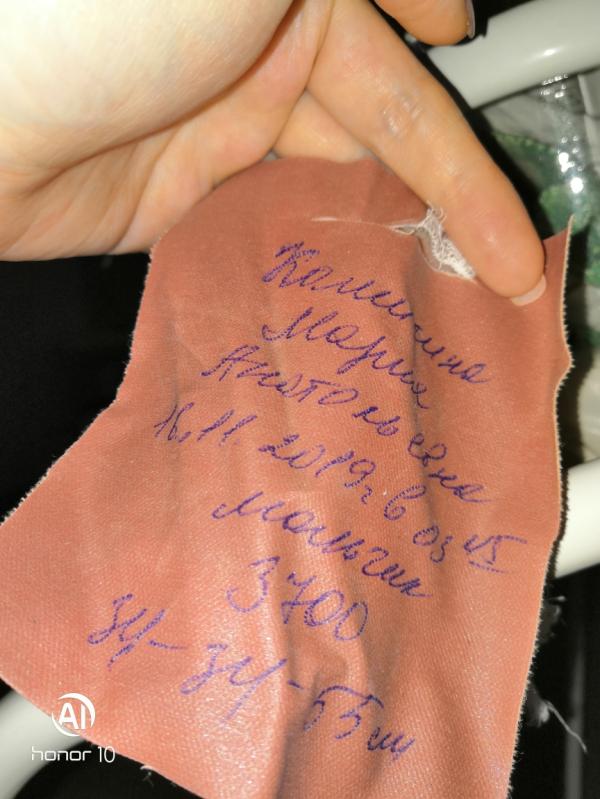 Калинина
Мария
Анатольевна
16.11.2019г в 03 45
мальчик
3700
34-34-55см
AI
honor 10